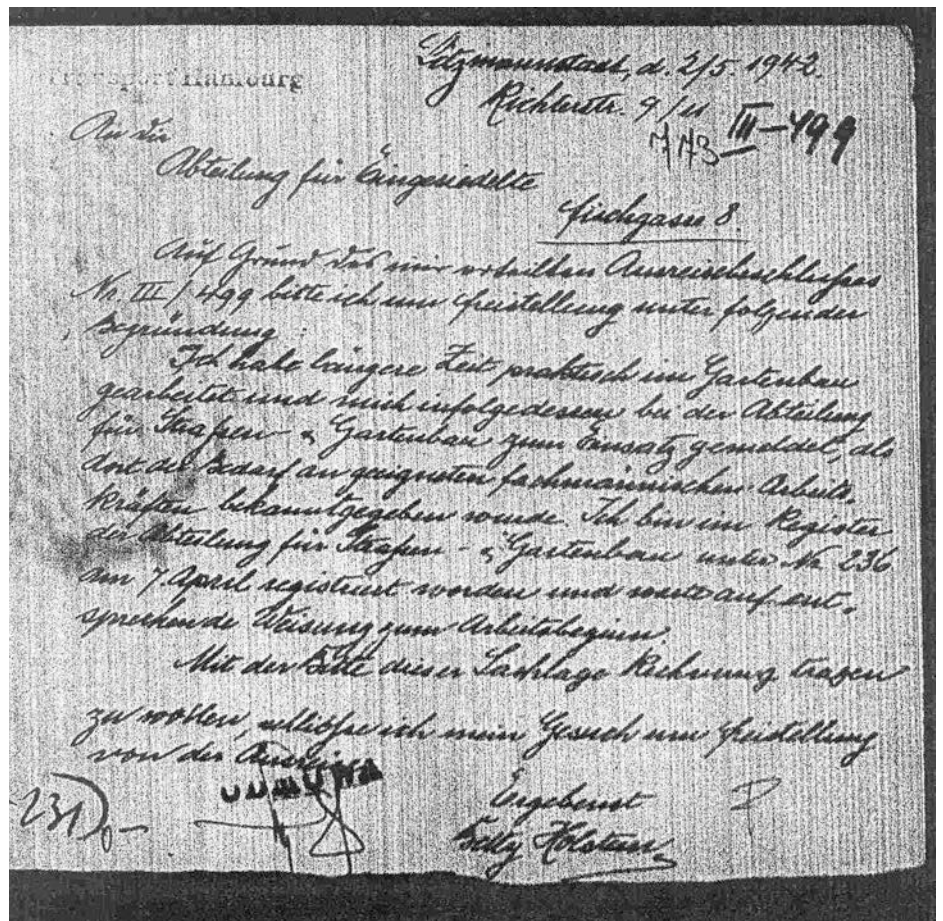 Transport Hamburg
Litzmannstadt, d. 2/5. 1942.
Richterstr. 9/11
773 III-499
An die
Abteilung für Eingesiedelte
Fischgasse 8.
Auf Grund des mir erteilten Ausreisebeschlusses
Nr. III/499 bitte ich um Freistellung unter folgender
Begründung:
Ich habe längere Zeit praktisch im Gartenbau
gearbeitet und mich infolgedessen bei der Abteilung
für Straßen- & Gartenbau zum Einsatz gemeldet, als
dort der Bedarf an geeigneten fachmännischen Arbeits-
kräften bekanntgegeben wurde. Ich bin im Register
der Abteilung für Straßen- & Gartenbau unter Nr. 236
am 7. April registriert worden und warte auf ent-
sprechende Weisung zum Arbeitsbeginn.
Mit der Bitte dieser Sachlage Rechnung tragen
zu wollen, schließe ich mein Gesuch um Freistellung
von der Ausreise
Ergebenst
231